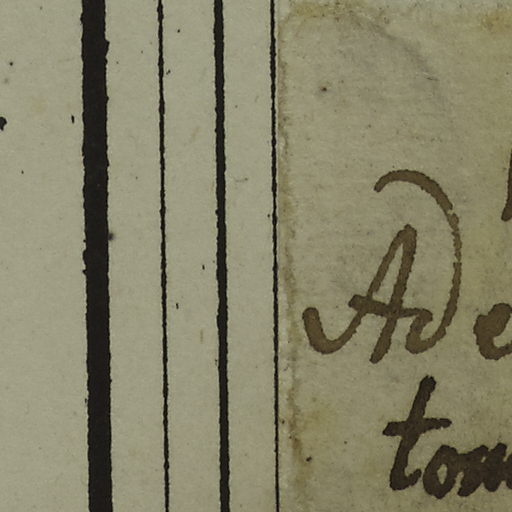 Ade
tom